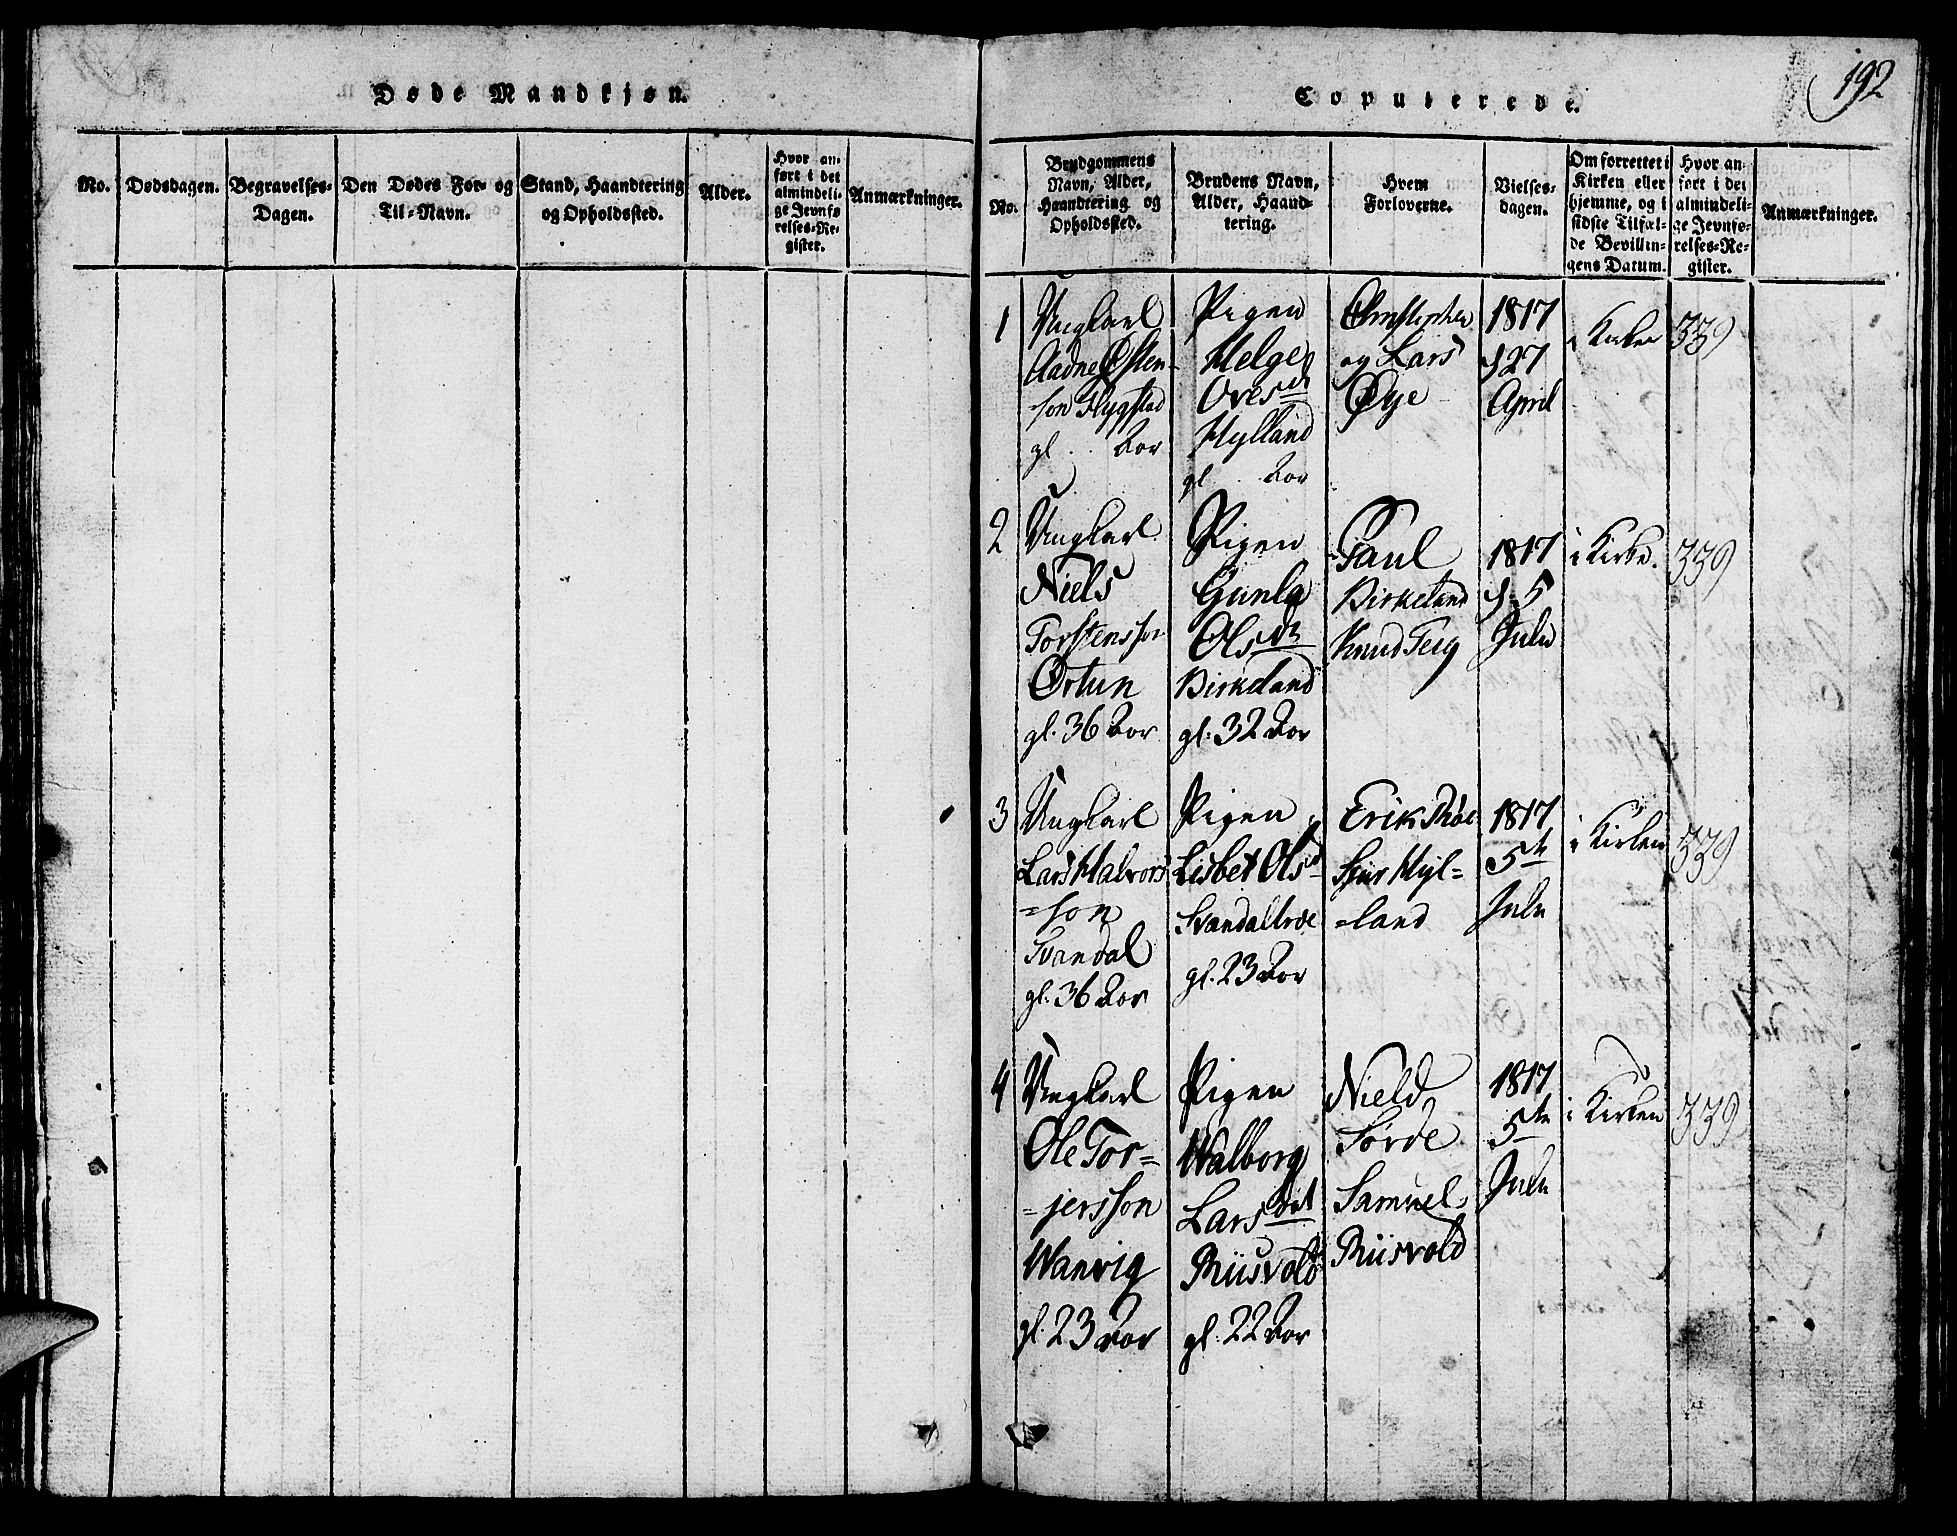 Døde Mandkjøn.
No.
Dødsdagen.
Begravelses-
Dagen.
Den Dødes For- og
Til-Navn.
Stand, Haandtering
og Opholdssted.
Alder.
Hvor an-
ført i det
almindeli-
ge Jevnfø-
relses-Re-
gister.
Anmærkninger.
192
Copulerede.
No.
Brudgommens
Navn, Alder,
Haandtering og
Opholdssted.
Brudens Navn,
Alder, Haand-
tering.
Hvem
Forloverne.
Vielses-
dagen.
Om forrettet i
Kirken eller
hjemme, og i
sidste Tilfæl-
de Bevillin-
gens Datum.
Hvor an-
ført i det
almindeli-
ge Jevnfø-
relses-Re-
gister.
Anmærkninger.
1
Ungkarl
Aadne Østen-
-son Flygstad
gl. Aar
Pigen
Helge
Oves dr
Hylland
gl. Aar
Christopher
og Lars
Øye
1817
d 27
April
i Kirken
339
2
Ungkarl
Niels
Torstensson
Ørtun
gl. 36 Aar
Pigen
Gunla
Ols dr
Birkeland
gl. 32 Aar
Paul
Birkeland
Knud Teig
1817
d 5
Julii
i Kirke.
339
3
Ungkarl
Lars Halvors
=son
Svandal
gl. 36 Aar
Pigen
Lisbet Olsd
Svandaltroe
gl. 23 Aar
Erik Røe
Siur Hyl=
=land
1817
5te
Julii
i Kirken
339
4
Ungkarl
Ole Tor=
=jersson
Wanvig
gl. 23 Aar
Pigen
Walborg
Lars dat
Riisvold
gl. 22 Aar
Niels
Førde
Samuel
Riisvold
1817
5te
Julii
i Kirken
339